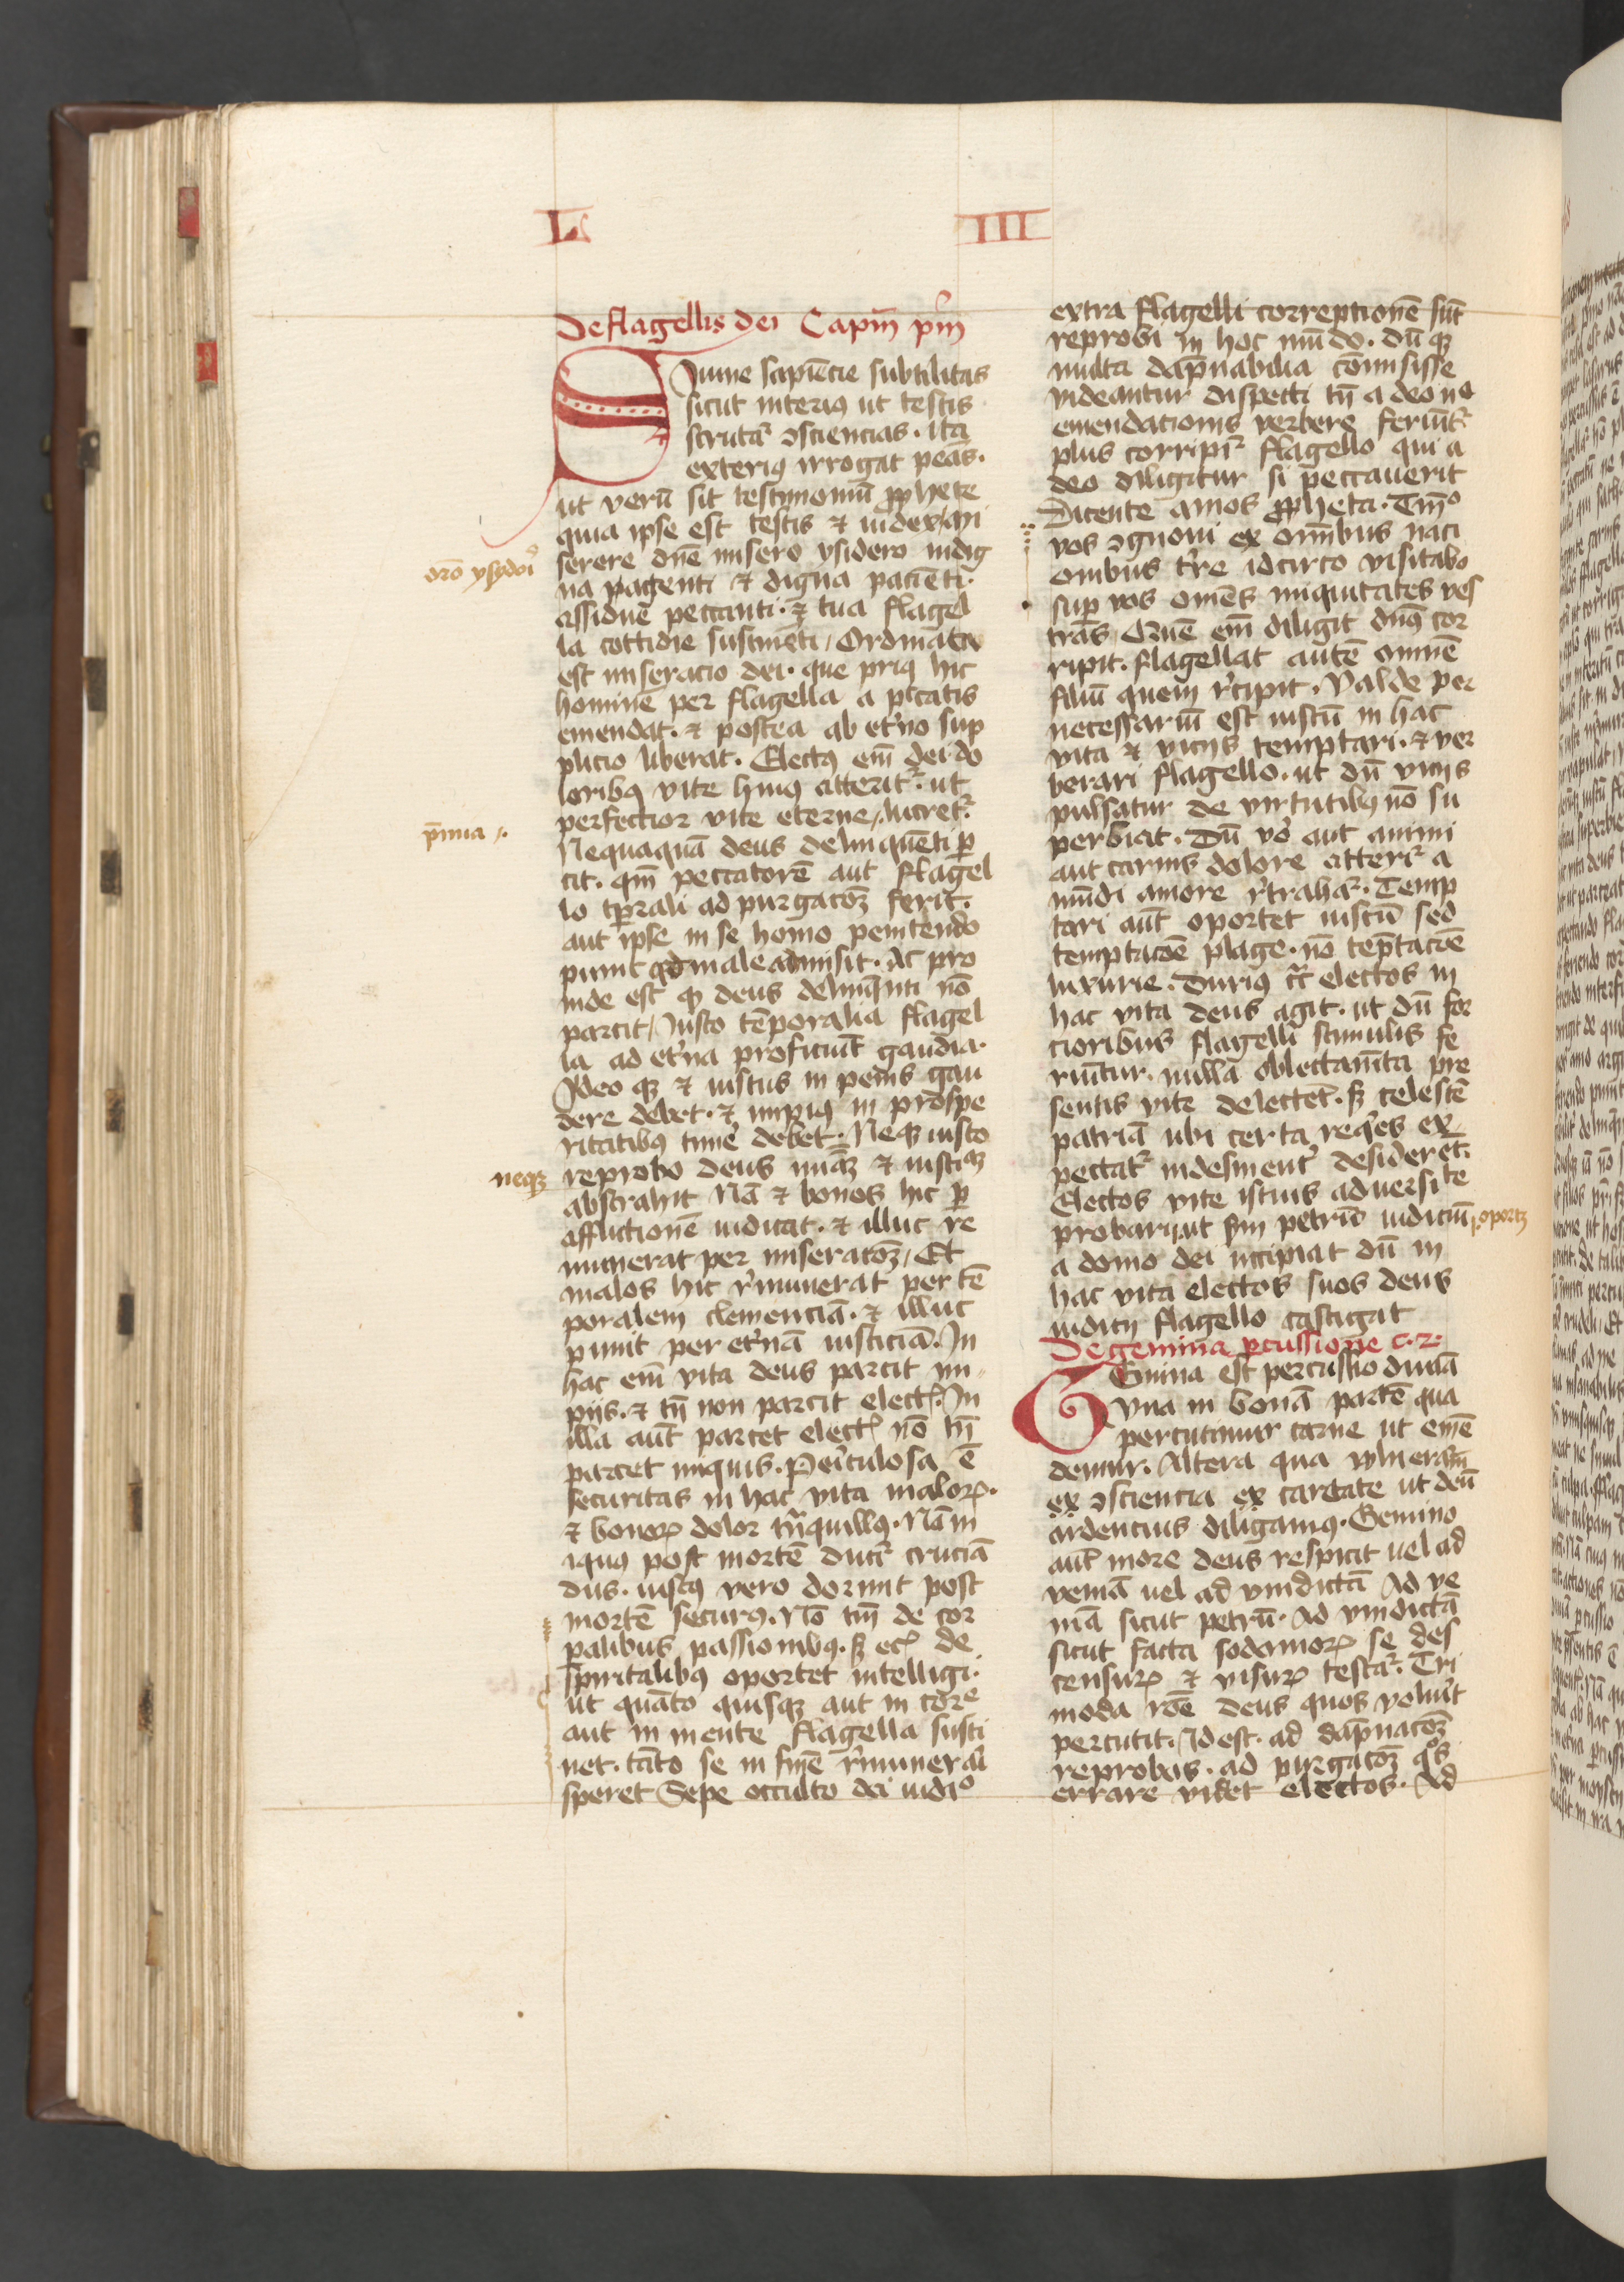 L III
De flagellis dei Capm̄ pm̄
Diuine sapiēcie subtilitas
sicut interiꝰ ut testis
scrutat᷑ ɔsciencias. ita
exteriꝰ irrogat penās.
ut verū sit testimoniū ꝓphete
quia ipse est testis ⁊ iudex / mi
serere dn̄e misero ysidero indig
na pagenti ⁊ digna paciēti.
assiduē peccanti. ⁊ tua flagel
la cottidie sustinēti / Ordinata
est miseracio dei. que priꝰ hic
hominē per flagella a pc̄catis
emendat. ⁊ postea ab et'no sup
plicio liberat. Electꝰ em̄ dei do
loribꝰ vite huiꝰ atterit᷑. ut
perfectior vite eterne / lucret᷑
Nequaquā deus delinquēti ꝑ
cit. qm̄ peccatorē aut flagel
lo tp̄rali ad purgacōꝫ ferit.
aut ipse in se homo penitendo
punit qd male admisit. Ac pro
inde est ꝙ deus delinq̄nti nō
parcit / Iusto tēporalia flagel
la ad et'na proficiūt gaudia.
Ideo qꝫ ⁊ iustus in penis gau
dere debet. ⁊ impiꝰ in prospe
ritatibꝰ time᷑ debet. Neqꝫ iusto
reprobo deus mīaꝫ ⁊ iusticiaꝫ
abstrahit Nā ⁊ bonos hic ꝑ
afflictionē iudicat. ⁊ illuc re
munerat per miseracōꝫ / Et
malos hic r᷑munerat per tē
poralem clemenciā. ⁊ illuc
punit per et'nā iusticiā. In
hac em̄ vita deus parcit im
pijs. ⁊ tn̄ non parcit elect̄. In
illa aūt parcet elect̄ nō tn̄
parcet iniquis. Peri'culosa ē
securitas in hac vita maloꝝ.
⁊ bonoꝝ dolor tn̄quillꝰ. Nā in
iquꝰ post mortē ducit᷑ cruciā
dus. iustꝰ vero dormit post
mortē securꝰ. Nō tm̄ de cor
palibus passionibꝰ. sꝫ ec̄ de
spiritalibꝰ oportet intelligi.
ut quāto quisqꝫ aut in core
aut in mente flagella susti
net. tāto se in fine r᷑munerari
speret Sepe occulto dei iudiº
extra flagelli correptionē sūt
reprobi in hoc mūdo. dū qꝫ
multa dap̄nabilia cōmisisse
videantur dispecti tn̄ a deo nº
emendationis verbere feriūt᷑
plus corripit᷑ flagello qui a
deo diligitur si peccauerit
Dicente amos ꝓpheta. Tm̄º
vos ɔgnoui ex om̄ibus naci
onibus tr᷑e idcirco visitabo
suꝑ vos om̄es iniquitates ves
tras / Quē em̄ diligit dn̄s cor
ripit. flagellat autē omnē
filiū quem r᷑cipit. Valde per
necessariū est iustū in hac
vita ⁊ vicijs temptari. ⁊ ver
berari flagello. ut dū vicijs
pulsatur de virtutibꝰ nō su
perbiat. Dū vo᷑ aut animi
aut carnis dolore atterit᷑ a
mūdi amore r᷑trahat᷑. Temp
tari aūt oportet iustū sed
temptacōe plage. nō tēptacōe
luxurie. Duriꝰ c̄ electos in
hac vita deus agit. ut dū for
cioribus flagelli stimulis fe
riūtur. nulla oblectam̄ta pre
sentis vite delectet. sꝫ celestē
patriā ubi certa req᷑es ex
pectat᷑ indesinent᷑ desideret.
Electos vite istius aduersite
probari. ut sm̄ petrū iudiciū
a domo dei incipiat dū in
hac vita electos suos deus
iudicij flagello castigat
De gemina ꝑcussione c. 2.
Gemina est percussio diuīa
vna in bonā partē qua
percutimur carne ut emē
demur. Altera qua vulneram̄
ex ɔsciencia ex caritate ut deū
ardencius diligamꝰ. Gemino
aūt more deus respicit uel ad
veniā uel ad vindictā Ad ve
niā sicut petrū. Ad vindictā
sicut facta sodomoꝝ se des
censuꝝ ⁊ visuꝝ testat᷑. Tri
moda rōe deus quos voluīt
percutit. Id est. ad dap̄nacōꝫ
reprobos. ad purgacōꝫ qºs
errare videt electos. Ad
orō ysydori
neqꝫ
oportꝫ